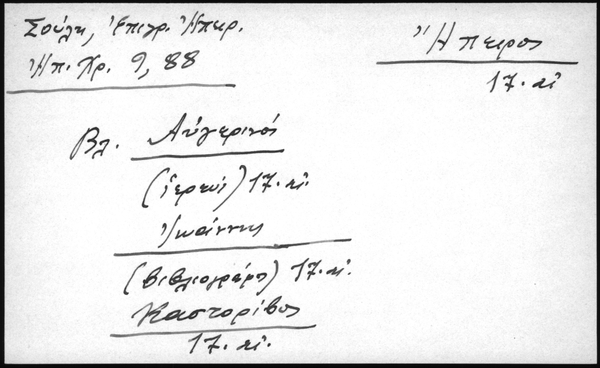 Σούλη, Ἐπιγρ. Ἠπειρ.
Ἠπ. Χρ. 9, 88
Ἤπειρος
17. αἰ
Βλ. Αὐγερινός
(ἱερεύς) 17. αἰ.
Ἰωάννης
(βιβλιογράφος) 17. αἰ.
Καστορίβος
17. αἰ.